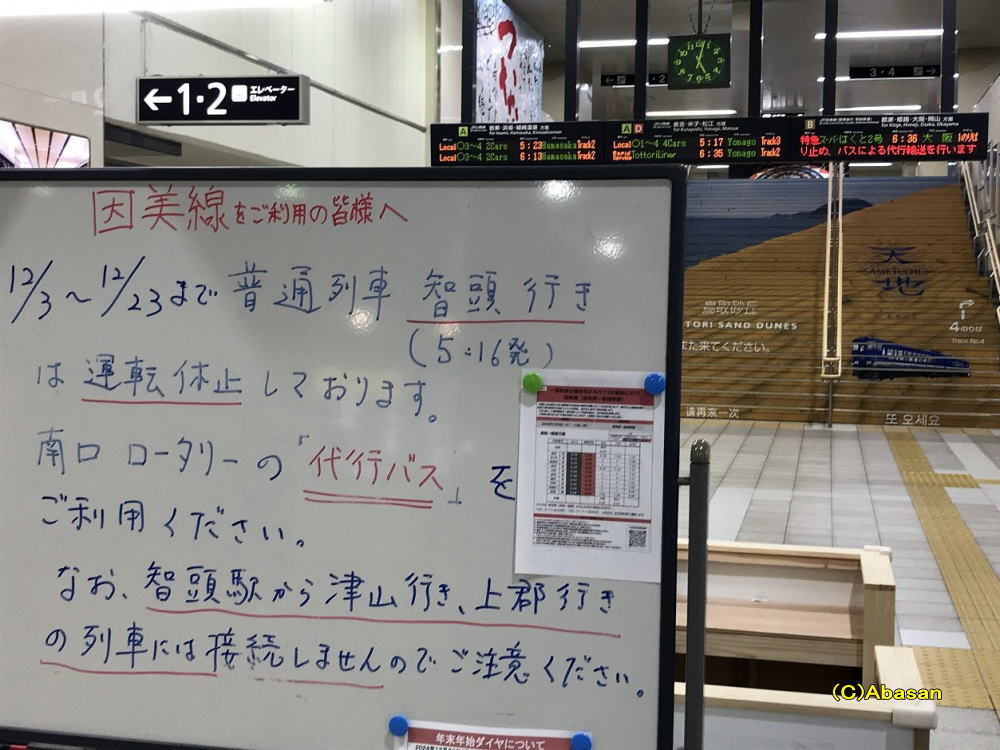 ←1・2 エレベーター
Elevator
3・4 →
A 岩美・浜坂・城崎温泉 方面
for Iwami, Hamasaka, Kinosakionsen
Local ○3~4 2Cars 5:23 Hamasaka Track2
Local ○3~4 2Cars 6:13 Hamasaka Track2
A D 倉吉・米子・松江 方面
for Kurayoshi, Yonago, Matsue
Local ○1~4 4Cars 5:17 Yonago Track3
Rapid Service TottoriLiner 6:35 Yonago Track2
B 郡家・姫路・大阪・岡山 方面
for Koge, Himeji, Osaka, Okayama
特急スーパーはくと2号 6:36 大阪 1のりば
り止め、バスによる代行輸送を行います
因美線をご利用の皆様へ
12/3～12/23まで 普通列車 智頭 行き
(5:16発)
は 運転休止 しております。
南口 ロータリーの「代行バス」を
ご利用ください。
なお、智頭駅から津山行き、上郡行き
の列車には接続しませんのでご注意ください。
年末年始ダイヤについて
天地
AMETUCHI
鳥取砂丘
TORI SAND DUNES
また来てください。
请再来一次
또 오세요
4のりば
Track No.4
(C)Abasan